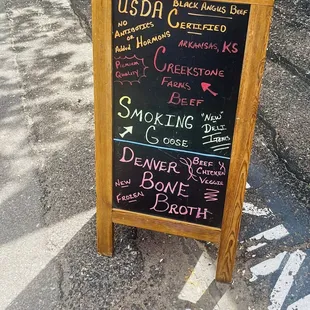 USDA Black Angus Beef
Certified
No
Antibiotics
or
Added Hormones
Arkansas, KS
Premium
Quality
Creekstone
Farms
Beef
Smoking
Goose
"New"
Deli
Items
Denver
Bone
Broth
Beef
Chicken
Veggie
New
Frozen